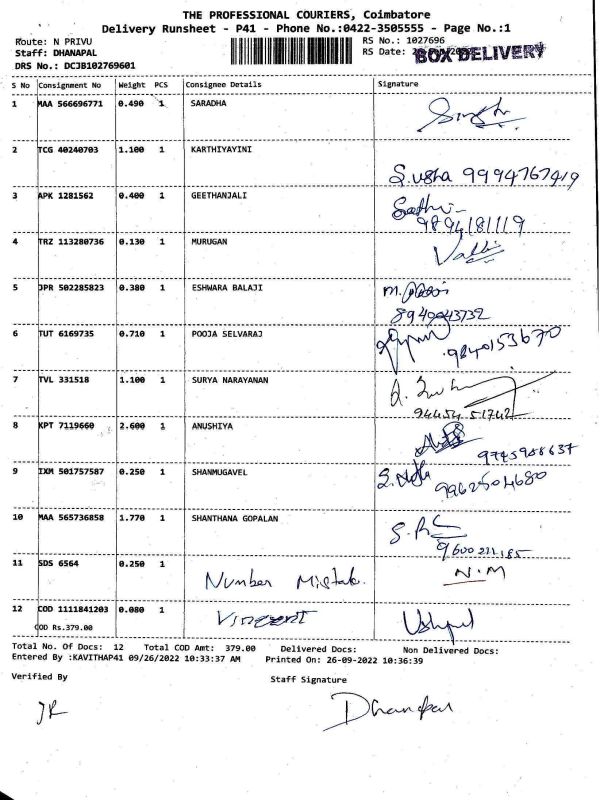 THE PROFESSIONAL COURIERS, Coimbatore
Delivery Runsheet - P41 - Phone No.:0422-3505555 - Page No.:1
Route: N PRIVU RS No.: 1027696
Staff: DHANAPAL RS Date: BOX DELIVERY
DRS No.: DCJB102769601
S No Consignment No Weight PCS Consignee Details Signature
1 MAA 566696771 0.490 1 SARADHA
2 TCG 40240703 1.100 1 KARTHIYAYINI
S.usha 9994767419
3 APK 1281562 0.400 1 GEETHANJALI
9894181119
4 TRZ 113280736 0.130 1 MURUGAN
5 JPR 502285823 0.380 1 ESHWARA BALAJI
8940943732
6 TUT 6169735 0.710 1 POOJA SELVARAJ
9840153670
7 TVL 331518 1.100 1 SURYA NARAYANAN
94454 51742
8 KPT 7119660 2.600 1 ANUSHIYA
9745948637
9 IXM 501757587 0.250 1 SHANMUGAVEL
9962504680
10 MAA 565736858 1.770 1 SHANTHANA GOPALAN
9600211185
11 SDS 6564 0.250 1 Number Mistak. N.M
12 COD 1111841203 0.080 1 Vincent
COD Rs.379.00
Total No. Of Docs: 12 Total COD Amt: 379.00 Delivered Docs: Non Delivered Docs:
Entered By :KAVITHAP41 09/26/2022 10:33:37 AM Printed On: 26-09-2022 10:36:39
Verified By Staff Signature
JR Dhanapal